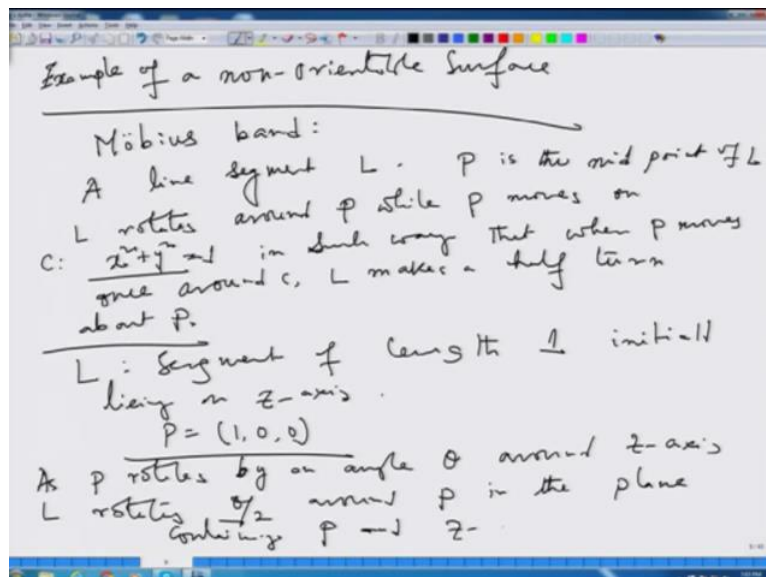 Example of a non-orientible surface
Möbius band:
A line segment L. P is the mid point of L
L rotates around P while P moves on
C: x²+y²=1 in such way that when P moves
once around C, L makes a half turn
about P.
L: Segment of length 1 initially
lieing on z-axis.
P = (1, 0, 0)
As P rotates by an angle θ around z-axis
L rotates θ/2 around P in the plane
containing P and z-